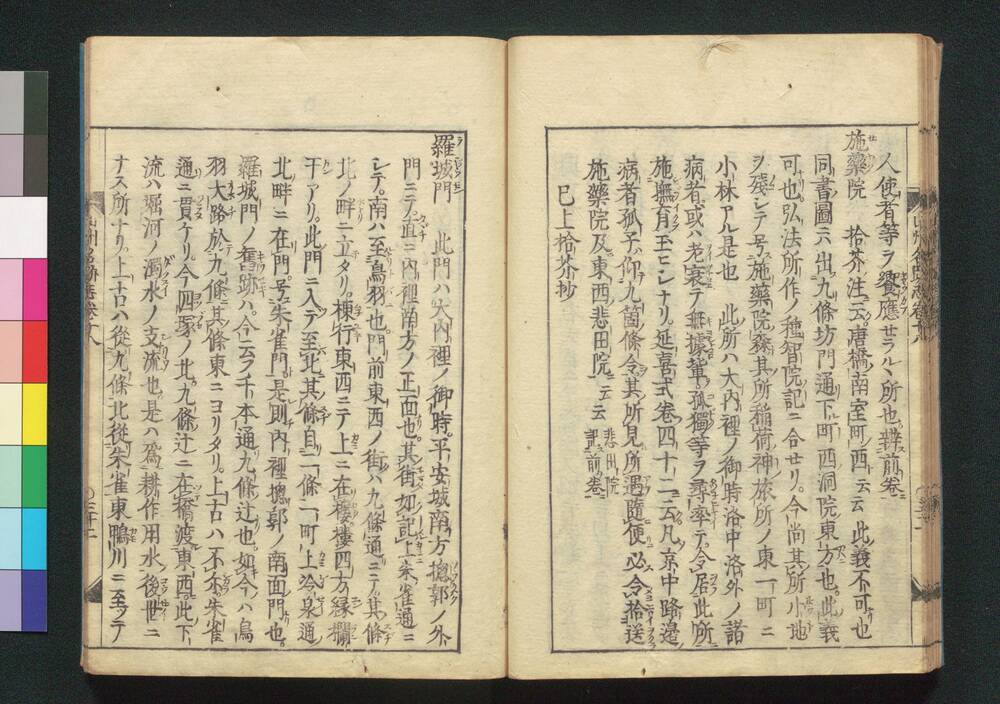 人使者等ヲ饗應セラルヽ所也辨前卷ニ
施藥院 拾芥注云唐橋南室町西云云此義不可也
同書圖ニハ出九條坊門通下町西洞院東方也此義
可也弘法所作ノ種智院記ニ合セリ今尚其所小地
ヲ殘シテ号施藥院森其所稻荷神旅所ノ東一町ニ
小林アル是也 此所ハ大內裡ノ御時洛中洛外ノ諸
病者或ハ老衰テ無據輩孤獨等ヲ尋率テ令居此所
施撫育玉ヒシナリ延喜式卷四十二云凡京中路邊
病者孤子仰九箇條令其所見所遇隨便必令拾送
施藥院及東西悲田院云云 悲田院記前卷ニ
已上拾芥抄
羅城門 此門ハ大內裡ノ御時平安城南方摠郭ノ外
門ニテ直ニ內裡南方ノ正面也其街如記上朱雀通ニ
シテ南ハ至鳥羽也門前東西ノ街ハ九條通ニテ其條
北ノ畔ニ立タリ棟行東西ニテ上ニ在樓樓四方緣欄
干アリ此門ニ入テ至北其條自一條一町上冷泉通
北畔ニ在門号朱雀門是則內裡摠郭ノ南面門也
羅城門ノ舊跡ハ今云フ千本通九條辻也如今ハ鳥
羽大路於九條其條東ニヨリタリ上古ハ不尓朱雀
通ニ貫ケリ今四塚ノ北九條辻ニ在橋渡東西此下
流ハ堀河ノ濁水ノ支流也是ハ爲耕作用水後世ニ
ナス所ナリ上古ハ從九條北從朱雀東鴨川ニ至ツテ
山州名跡志卷十八
山州名跡志卷十八